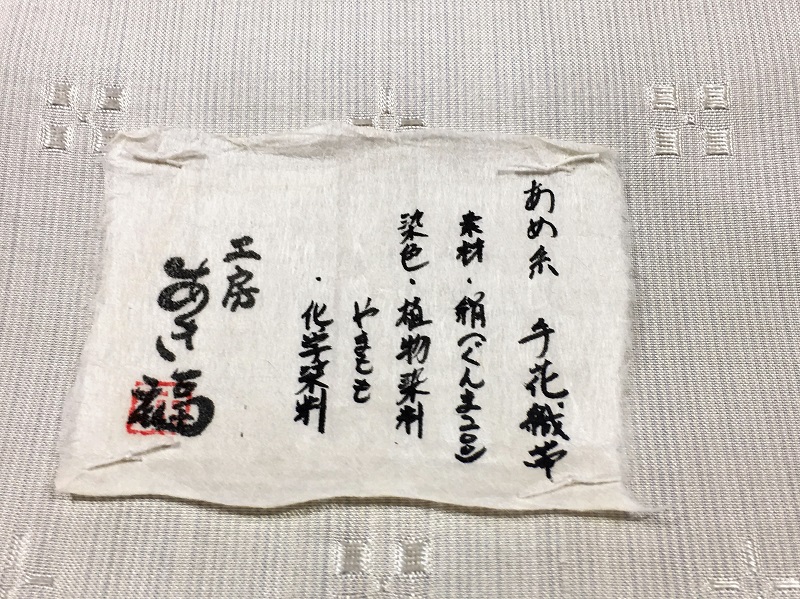 あめ糸 手花織帯
素材・絹(ぐんま200)
染色・植物染料
やまもも
・化学染料
工房
あき福